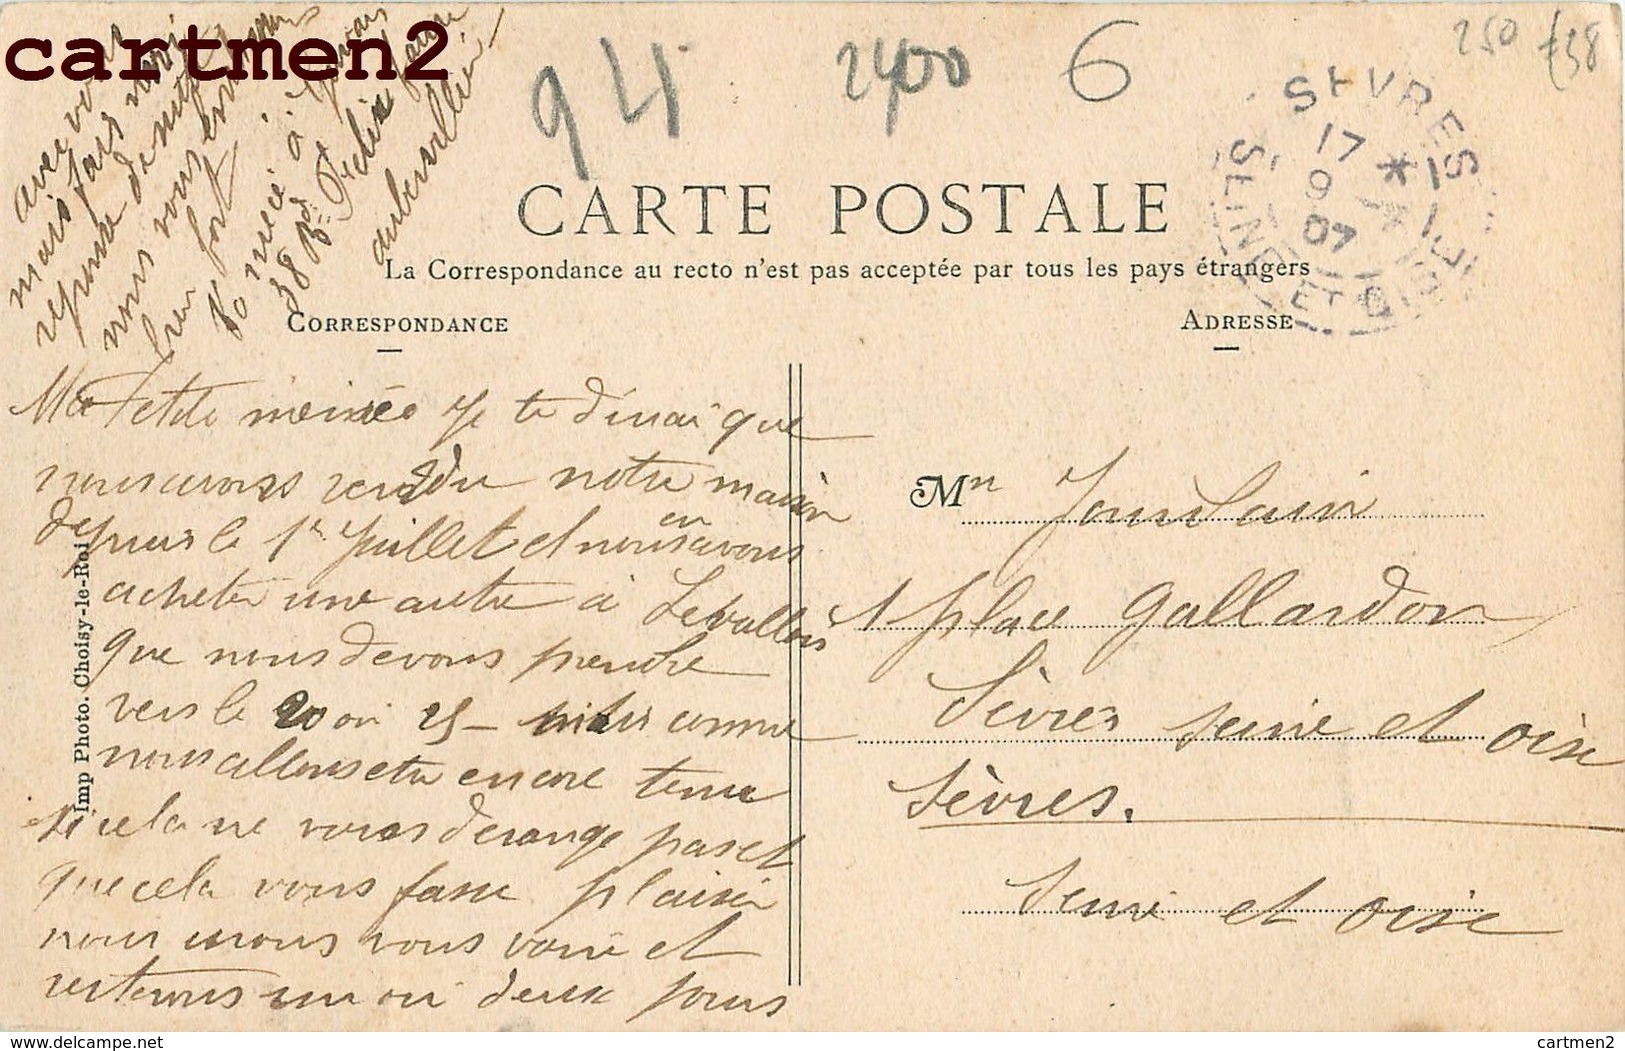 cartmen2
94
2400
6
250
£38
SEVRES
17
9
07
SEINE ET OISE
CARTE POSTALE
La Correspondance au recto n'est pas acceptée par tous les pays étrangers
CORRESPONDANCE
ADRESSE
Ma Petite Je te dirai que
nous avons vendu notre maison
depuis le 1er Juillet et nous en avons
acheter une autre à Levallois
que nous devons prendre
vers le 20 ou 25 - comme
nous allons etre encore
si cela ne vous derange pas et
que cela vous fasse plaisir
nous irons vous voir et
resterons un ou deux jours
avec vous
mais fais moi
reponse de suite
nous vous
bien fort
ta niece
38 Bd Felix Faure
aubervilliers
Mn Jourdain
1 place Gallardon
Sèvres Seine et oise
Sèvres.
Seine et oise
Imp Photo. Choisy-le-Roi
www.delcampe.net
cartmen2